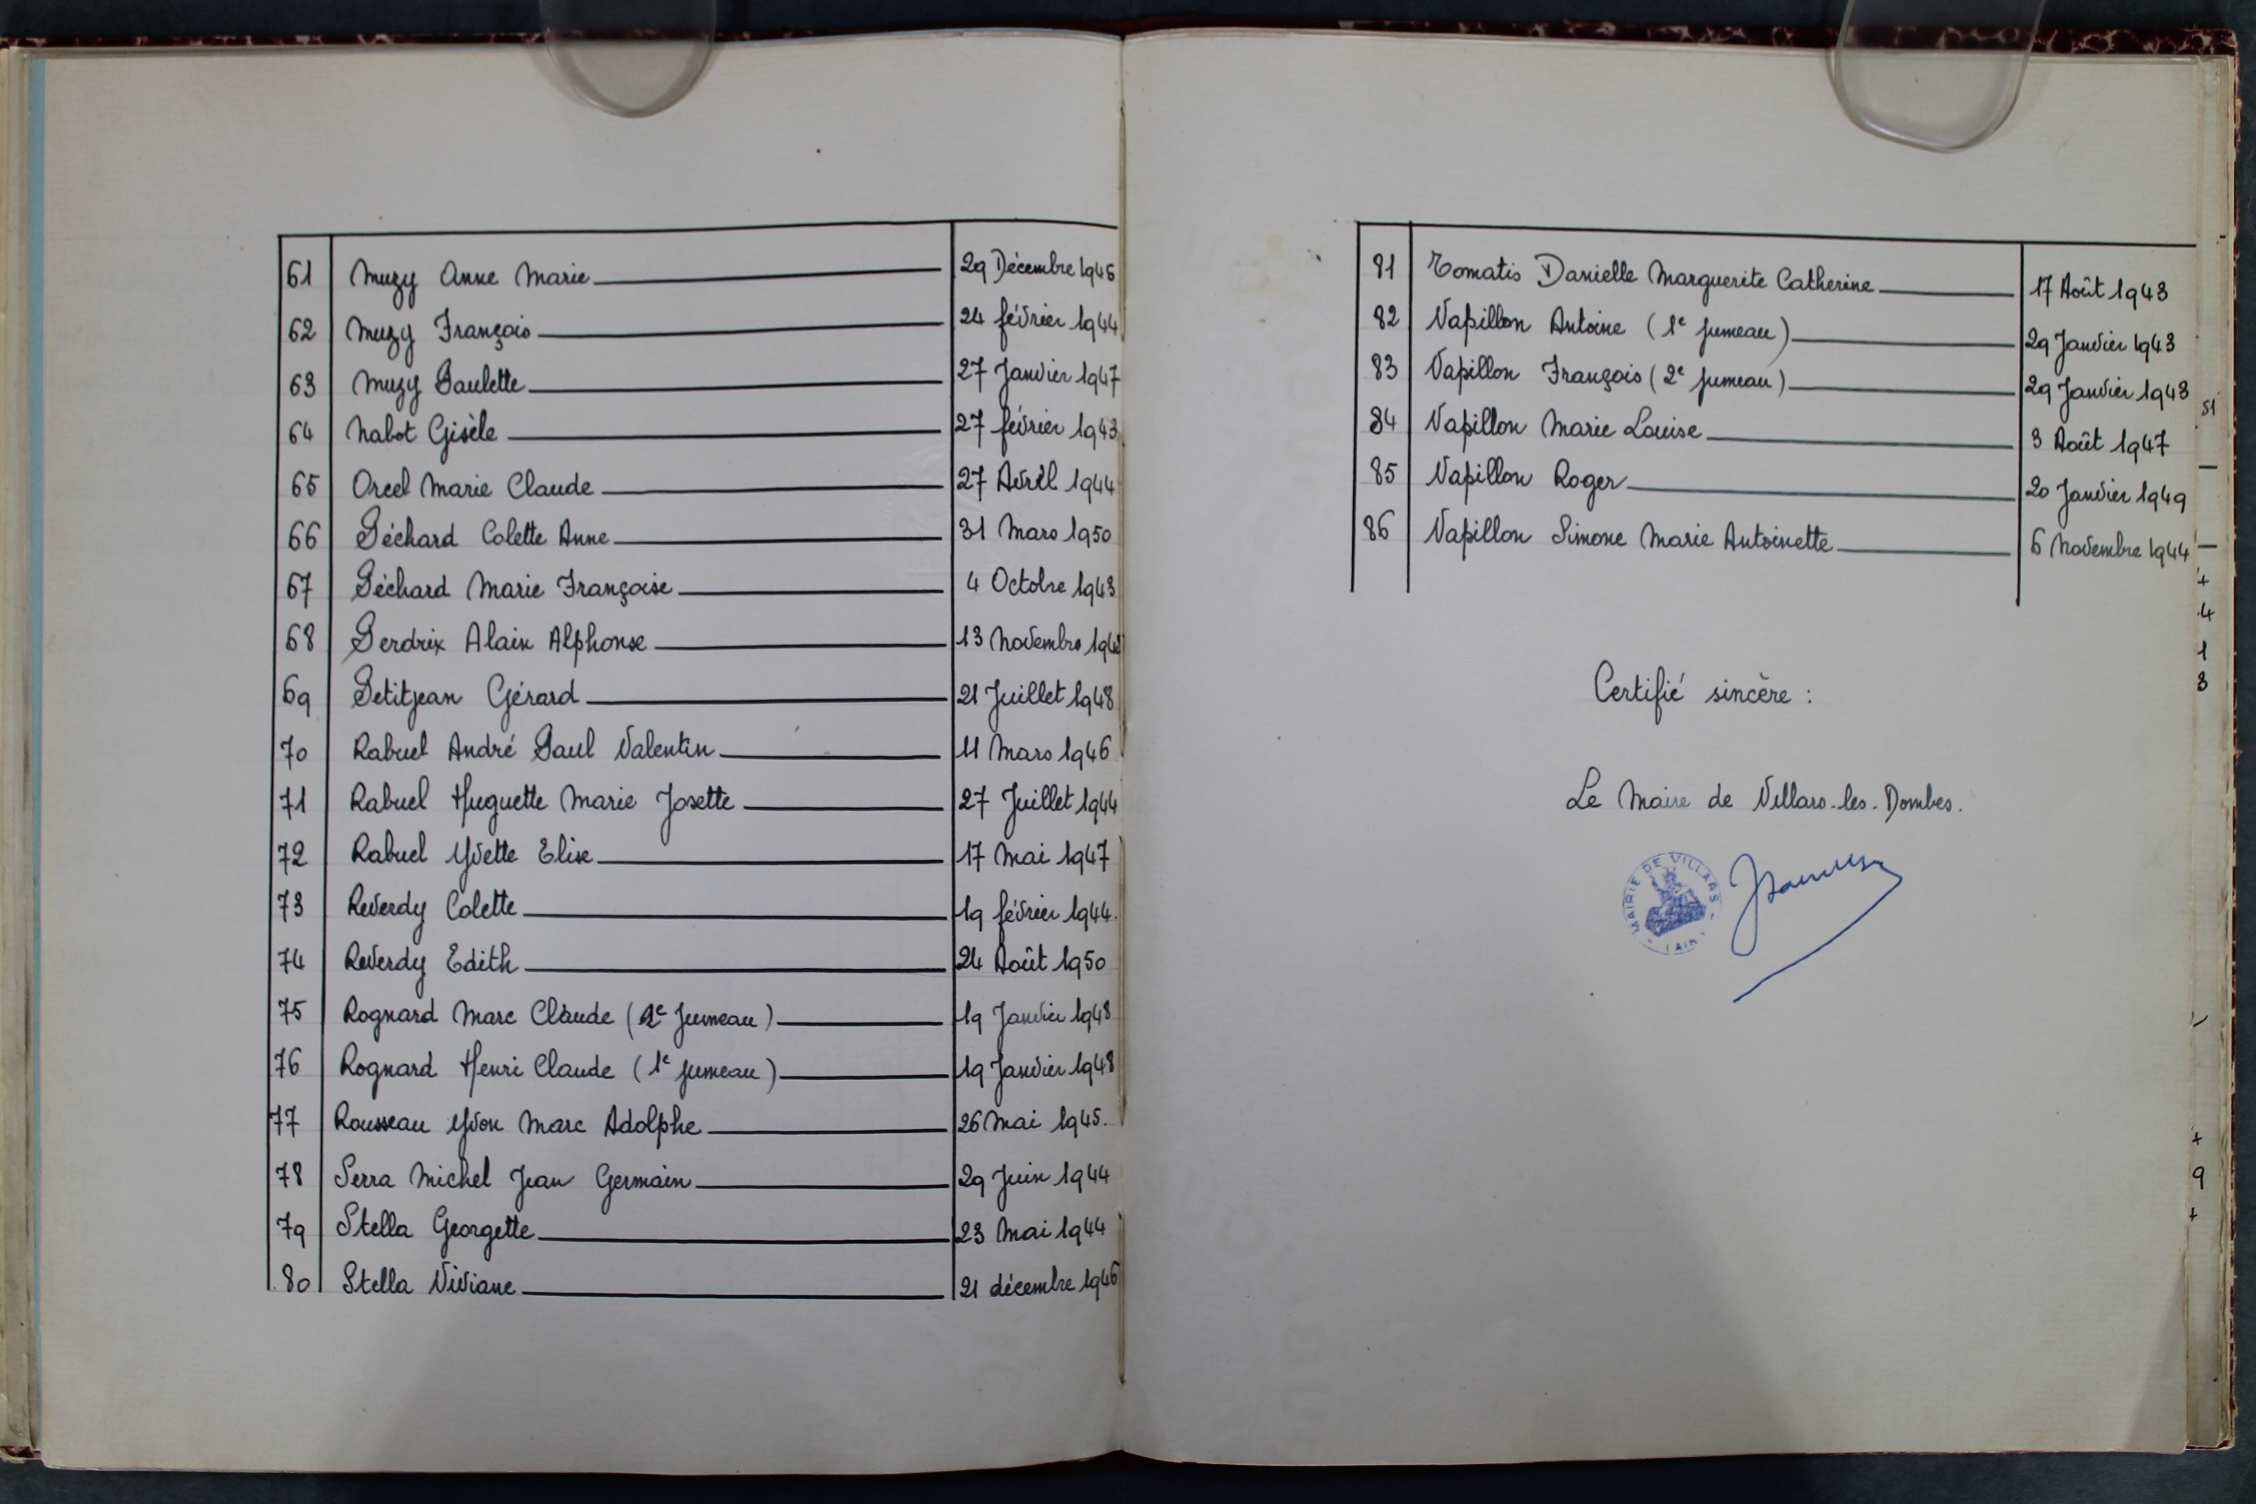 61 Muzy Anne Marie 29 Décembre 1945
62 Muzy François 24 février 1944
63 Muzy Paulette 27 Janvier 1947
64 Nabot Gisèle 27 février 1943
65 Orcel Marie Claude 27 Avril 1944
66 Péchard Colette Anne 31 Mars 1950
67 Péchard Marie Françoise 4 Octobre 1943
68 Perdrix Alain Alphonse 13 Novembre
69 Petitjean Gérard 21 Juillet 1948
70 Rabuel André Paul Valentin 11 Mars 1946
71 Rabuel Huguette Marie Josette 27 Juillet 1944
72 Rabuel Yvette Elise 17 Mai 1947
73 Reverdy Colette 19 février 1944.
74 Reverdy Edith 24 Août 1950
75 Rognard Marc Claude (2e Jumeau) 19 Janvier 1948
76 Rognard Henri Claude (1e jumeau) 19 Janvier 1948
77 Rousseau Yvon Marc Adolphe 26 Mai 1945.
78 Serra Michel Jean Germain 29 Juin 1944
79 Stella Georgette 23 Mai 1944
80 Stella Viviane 21 décembre 1946
81 Tomatis Danielle Marguerite Catherine 17 Août 1943
82 Vapillon Antoine (1e jumeau) 29 Janvier 1943
83 Vapillon François (2e jumeau) 29 Janvier 1943
84 Vapillon Marie Louise 3 Août 1947
85 Vapillon Roger 20 Janvier 1949
86 Vapillon Simone Marie Antoinette 6 Novembre 1944
Certifié sincère :
Le Maire de Villars-les-Dombes.
MAIRIE DE VILLARS
(AIN)